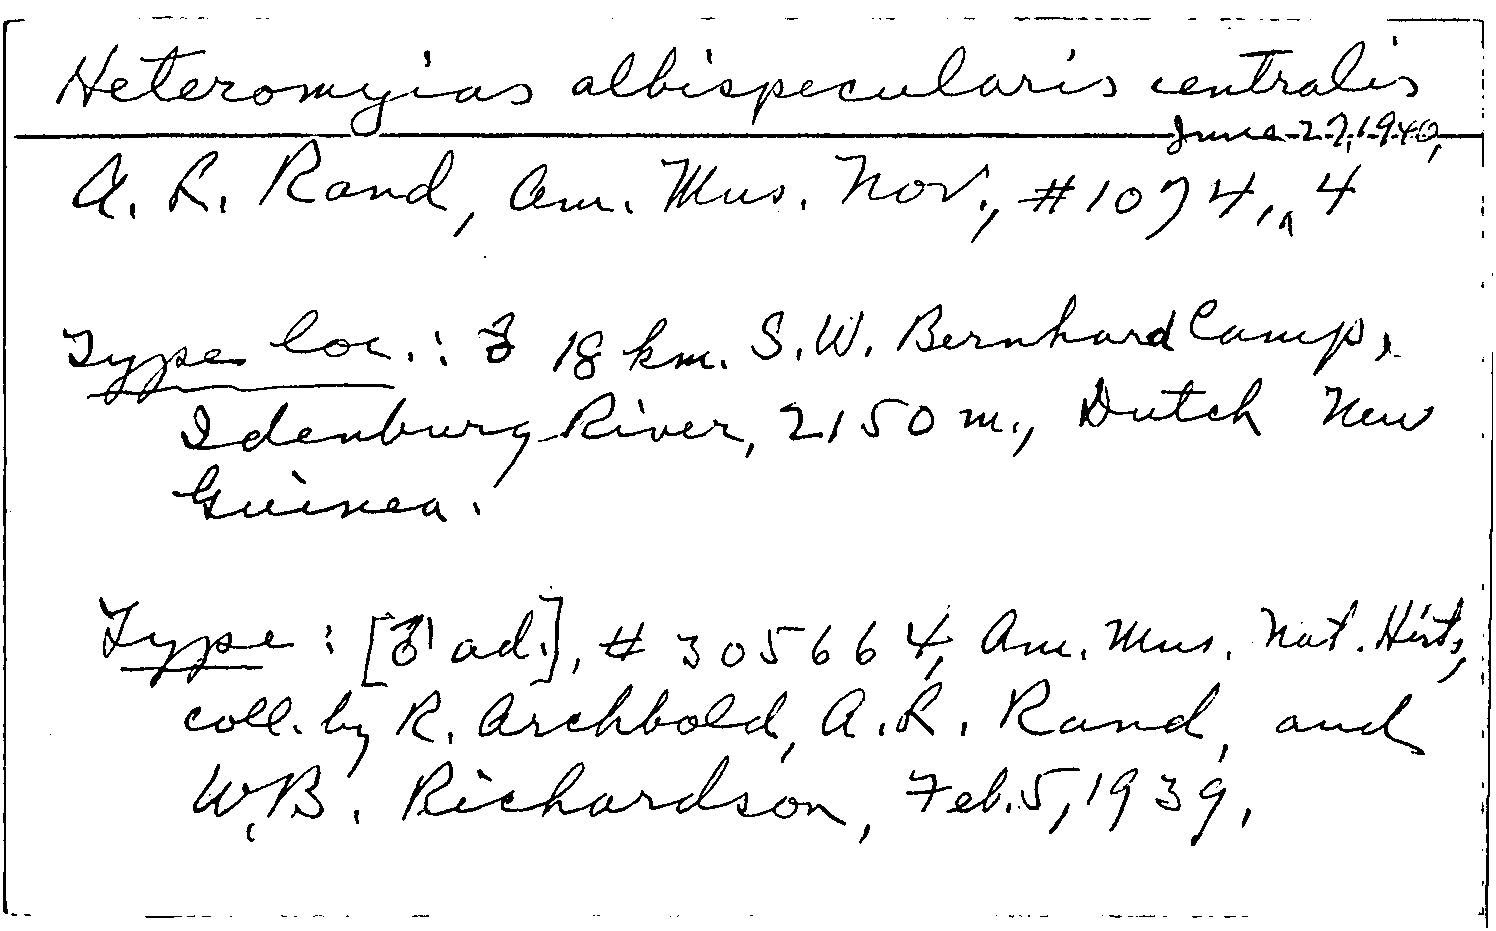 Heteromyias albispecularis centralis
June 27, 1940,
A. L. Rand, Am. Mus. Nov., #1074, ^ 4
Type loc.: 18 km. S.W. Bernhard Camp,
Idenburg River, 2150 m., Dutch New
Guinea.
Type: [♂ ad.], # 305664, Am. Mus. Nat. Hist.,
coll. by R. Archbold, A. L. Rand, and
W.B. Richardson, Feb. 5, 1939.